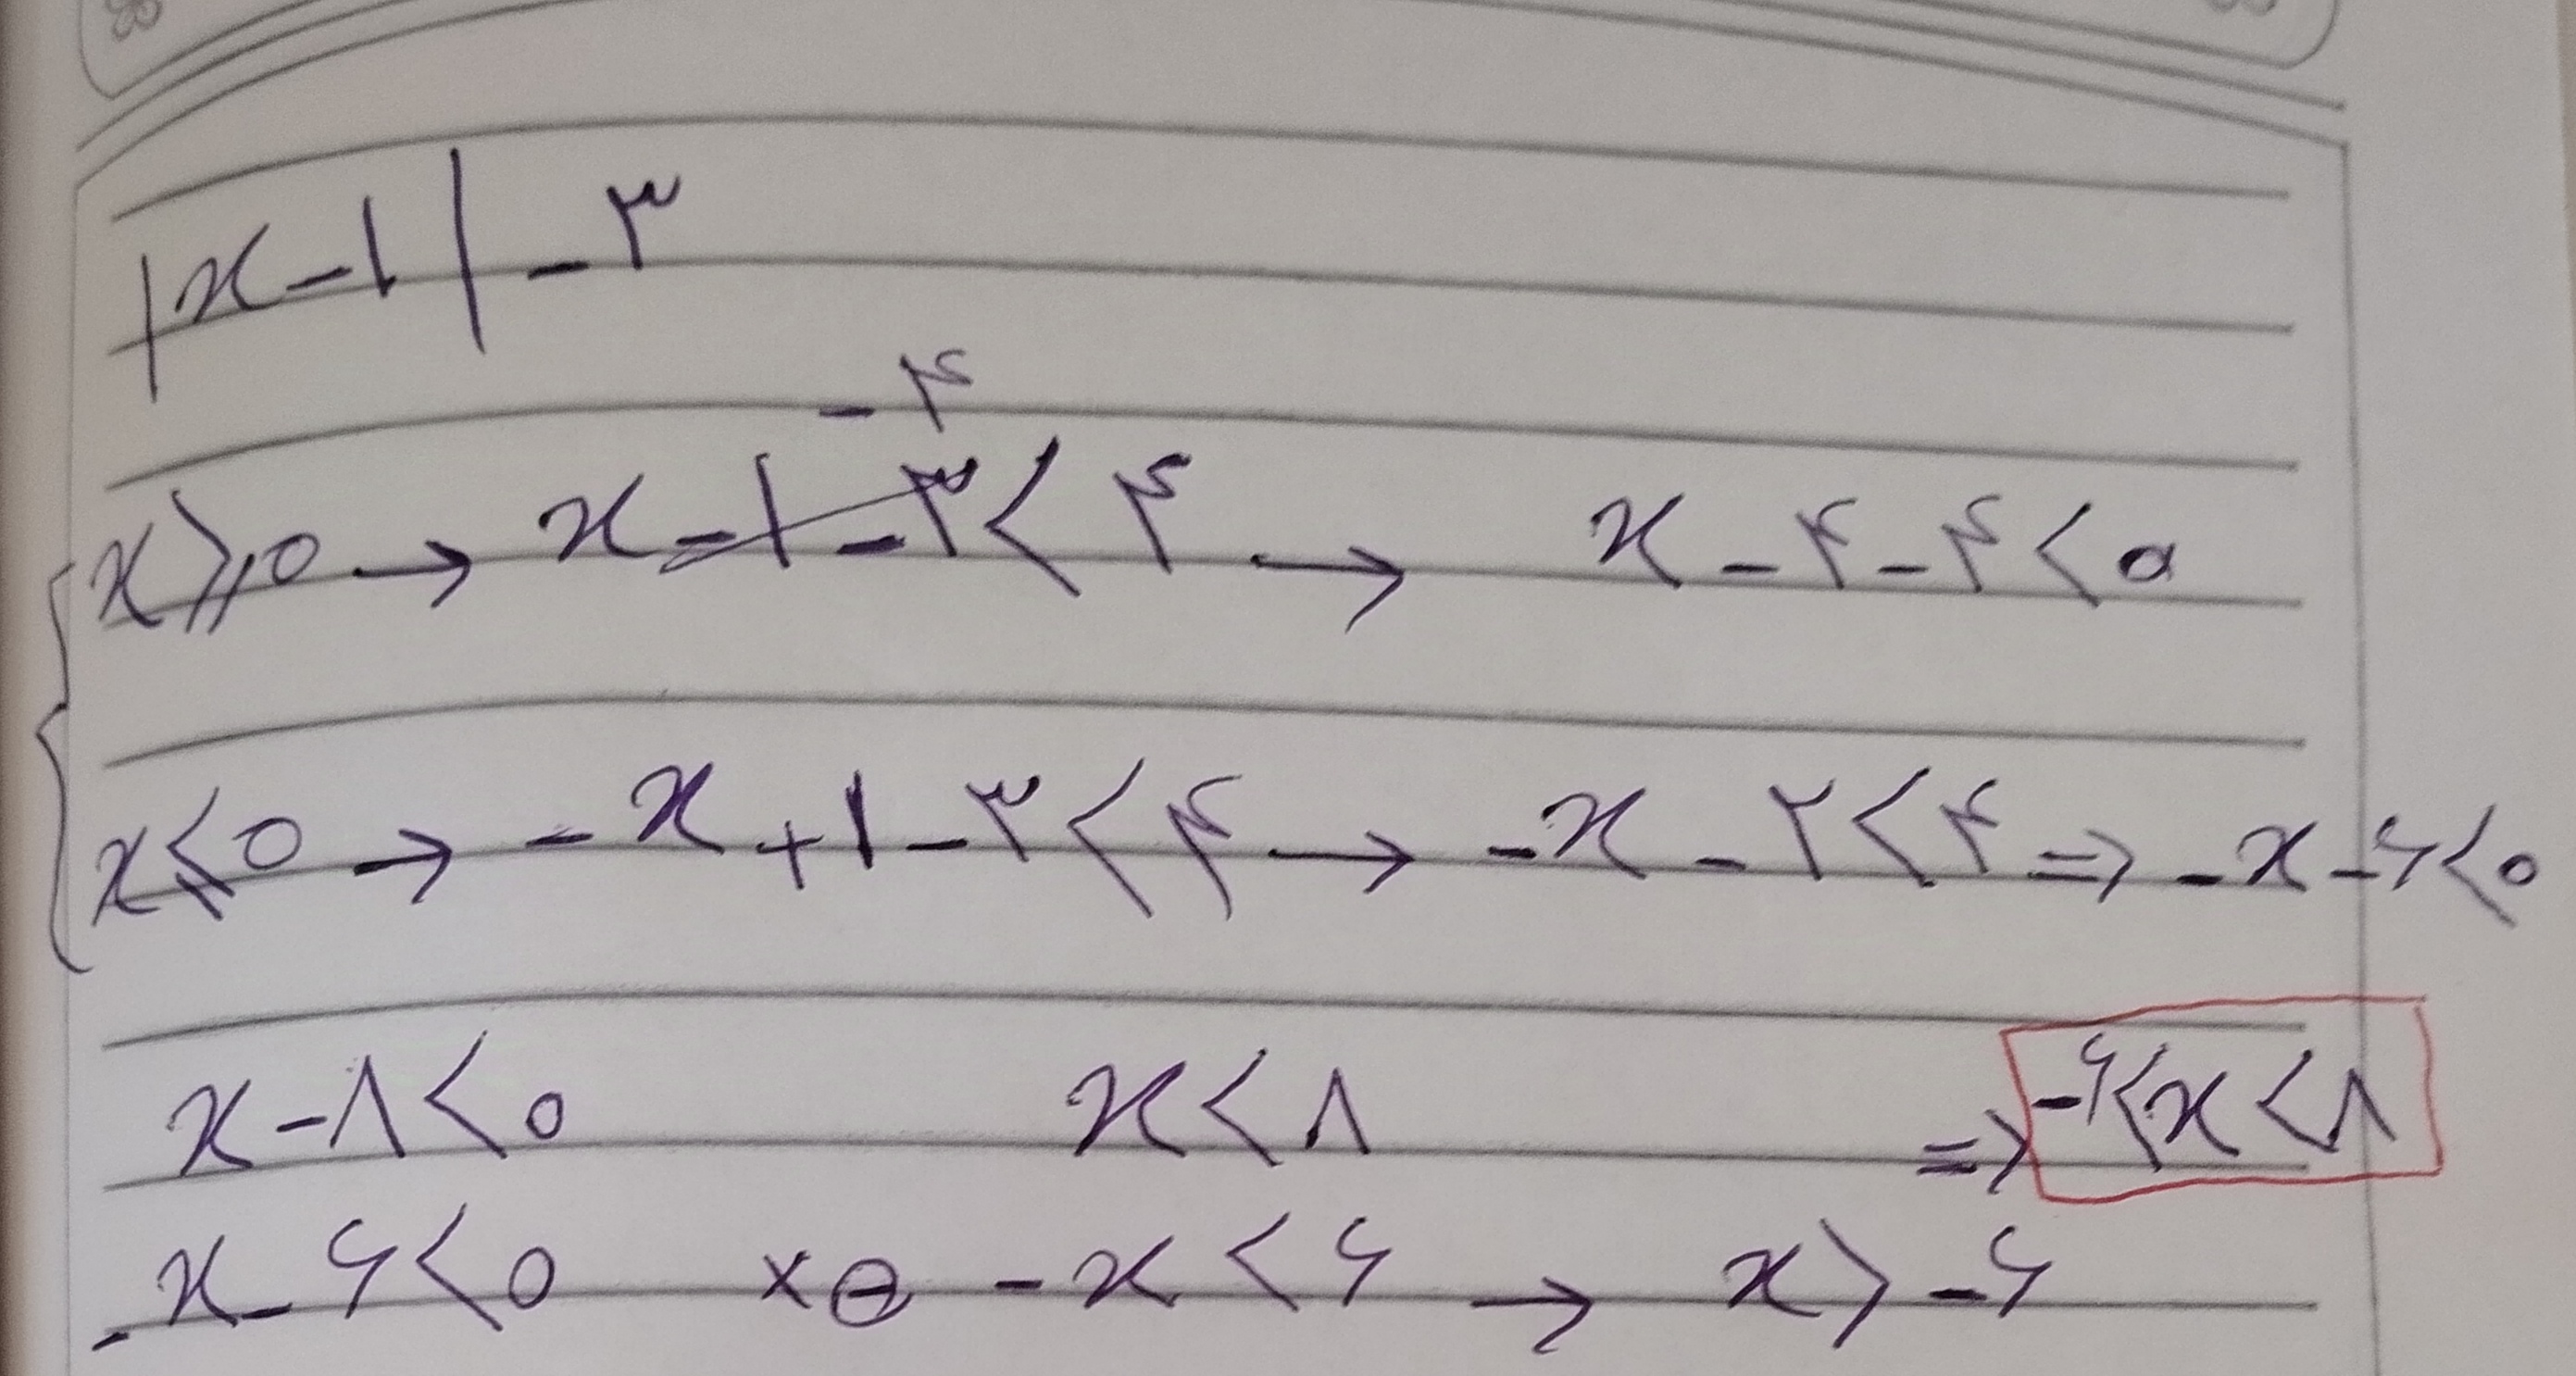 |x-۱|-۳
-۴
x⩾0 → x-۱-۳<۴ → x-۴-۴<۰
x⩽0 → -x+۱-۳<۴ → -x-۲<۴ => -x-۶<۰
x-۸<۰ x<۸ => -۶<x<۸
-x-۶<۰ ×⊖ -x<۶ → x>-۶